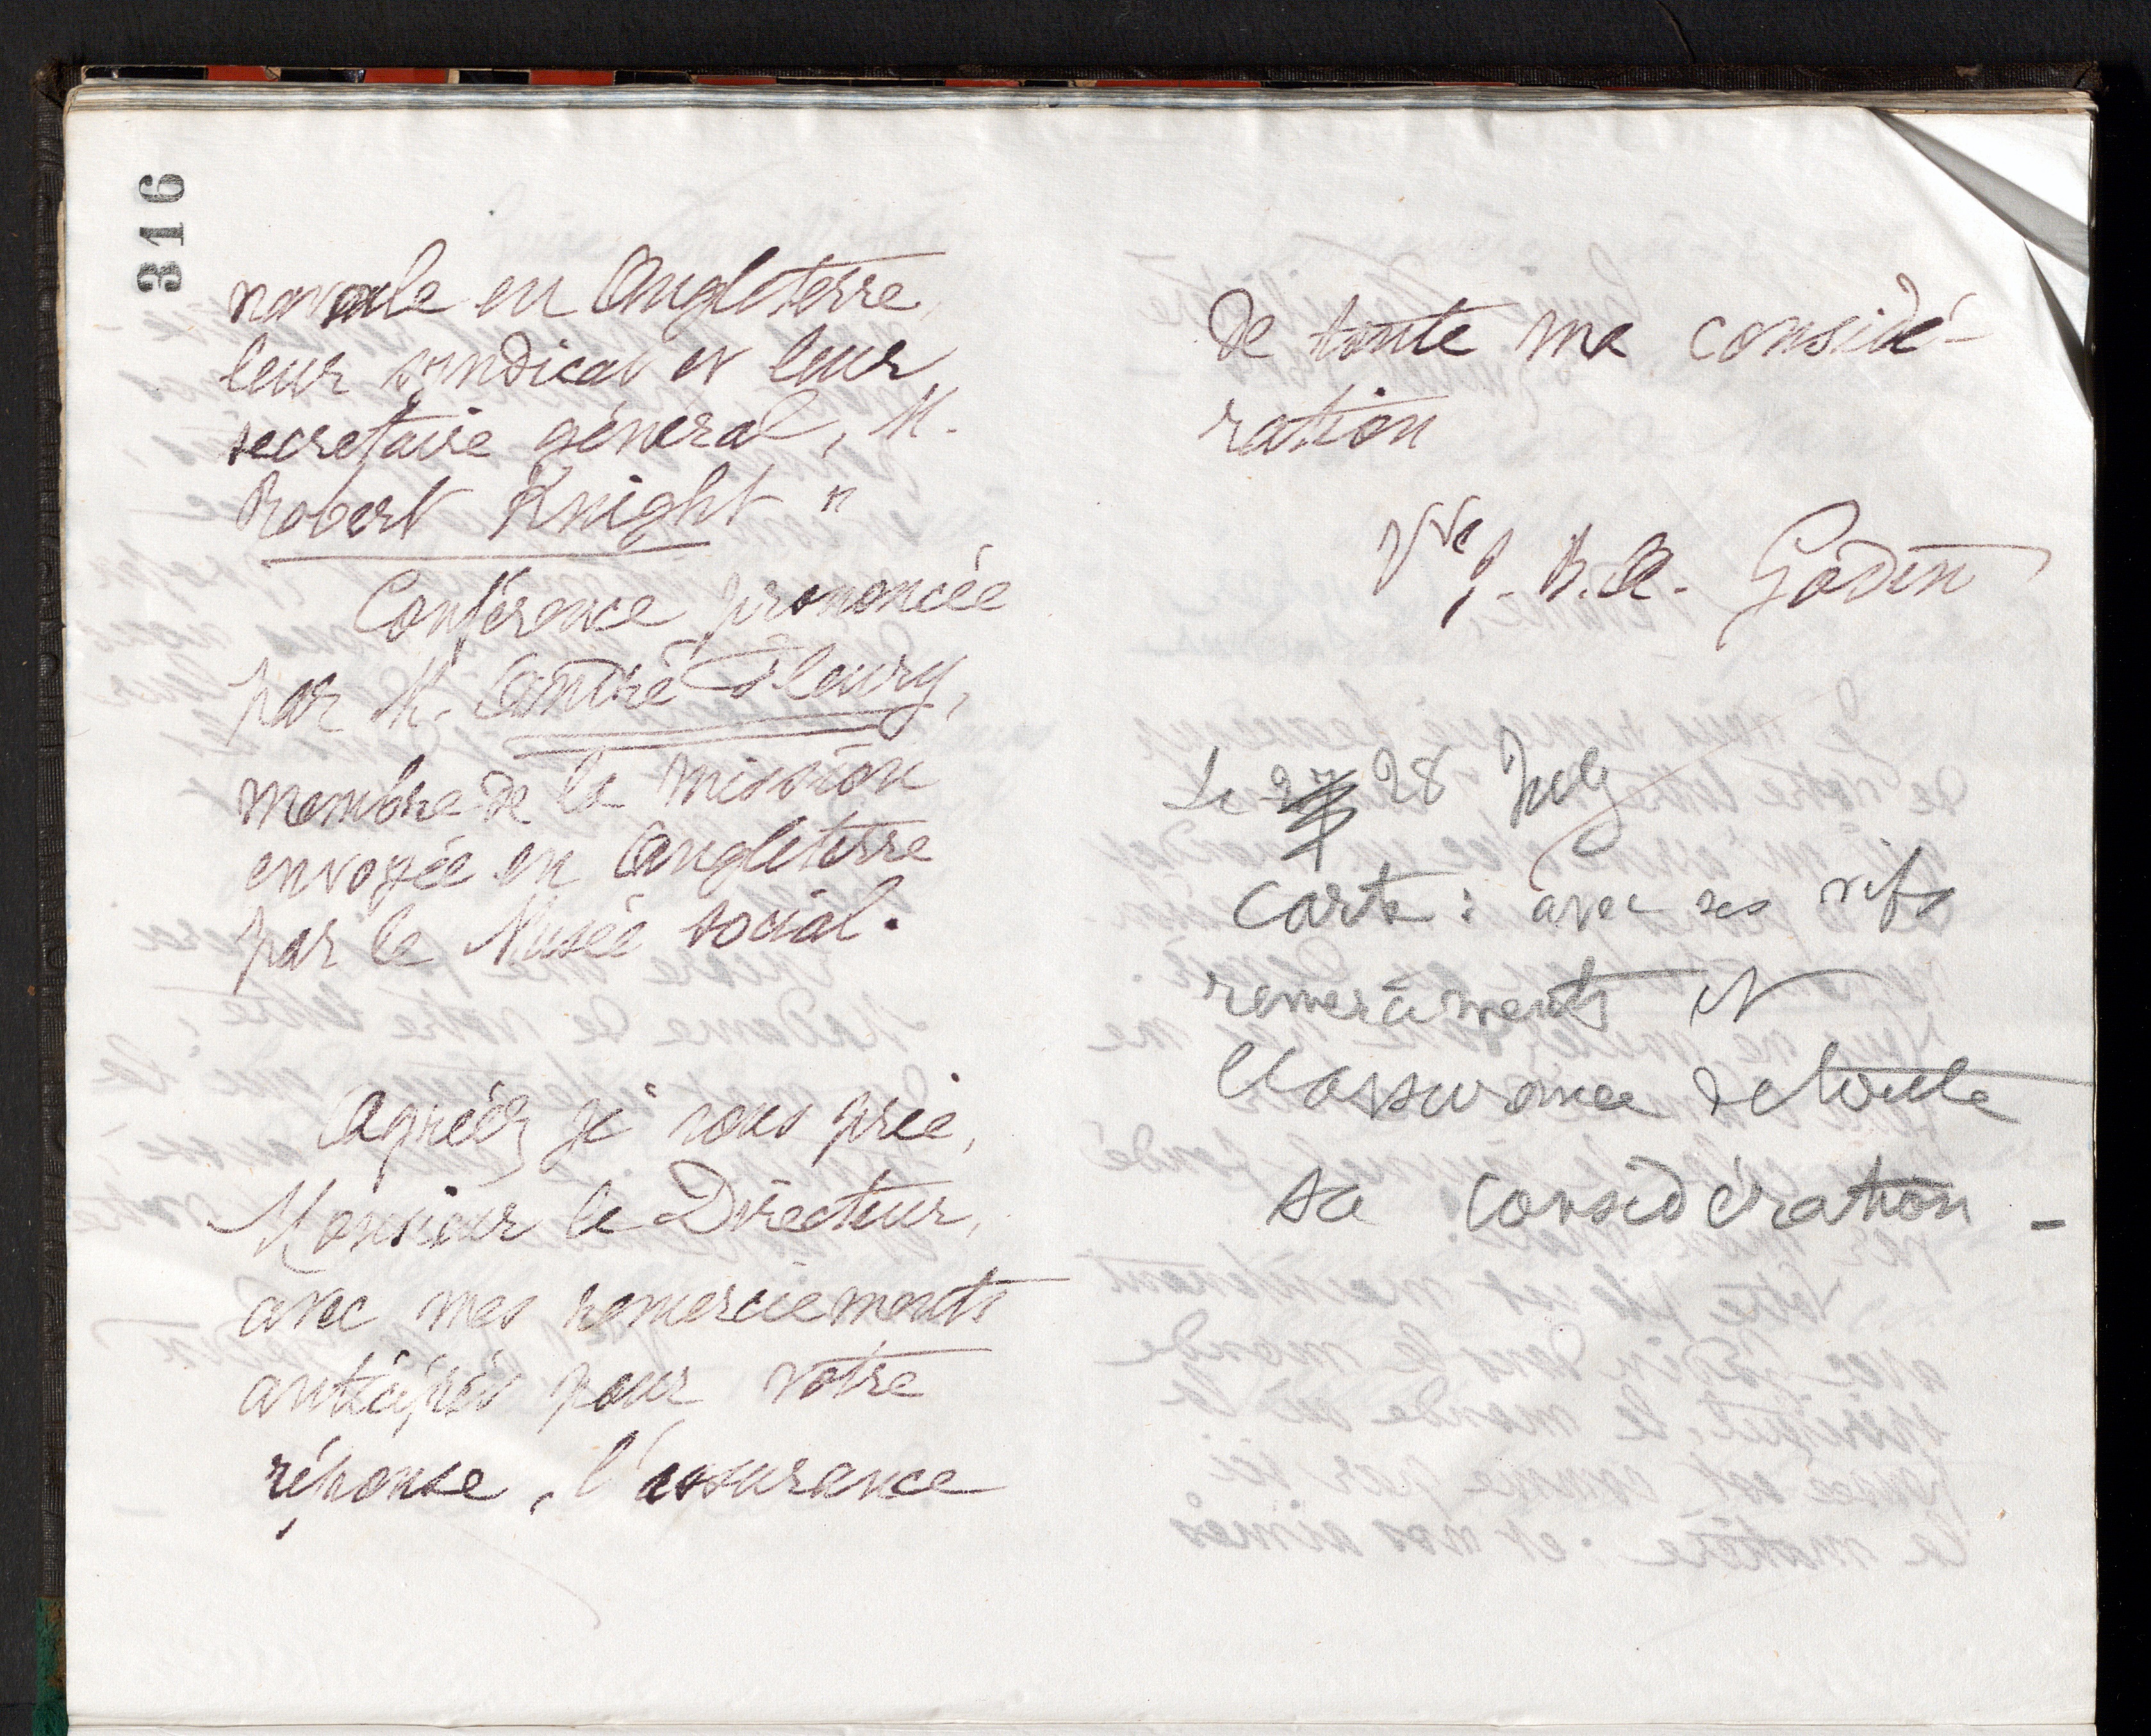 316
navale en Angleterre,
leur syndicat et leur
secretaire général, M.
Robert Knight "
Conférence prononcée
par M. André Fleury,
membre de la mission
envoyée en Angleterre
par le Musée social.
Agréez je vous prie,
Monsieur le Directeur,
avec mes remerciements
anticipés pour votre
réponse, l'assurance
de toute ma considé-
ration
Vve J. B. A. Godin
Le 27 28 July
carte : avec ses vifs
remerciments et
l'assurance de toute
sa considération -